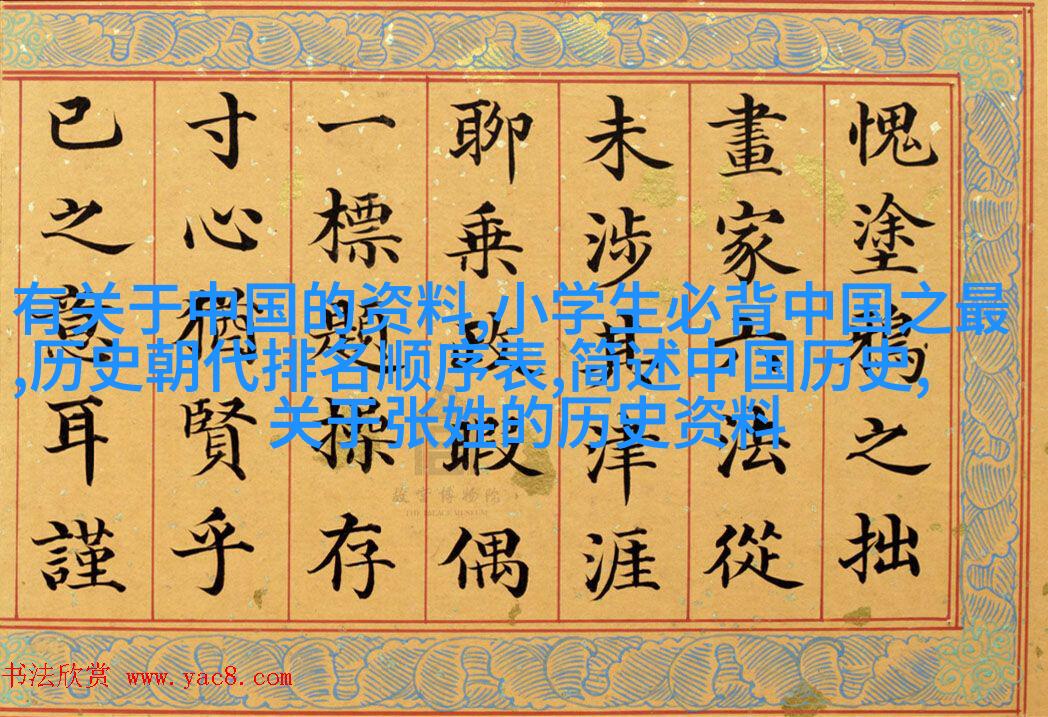 愧塗鴉之拙
畫家六法從
未涉其津涯
聊乘政暇偶
一標題操存
寸心猶賢乎
已之意耳謹
有关于中国的资料,小学生必背中国之最
,历史朝代排名顺序表,简述中国历史,
关于张姓的历史资料
故宫博物院
THE PALACE MUSEUM
书法欣赏 www.yac8.com